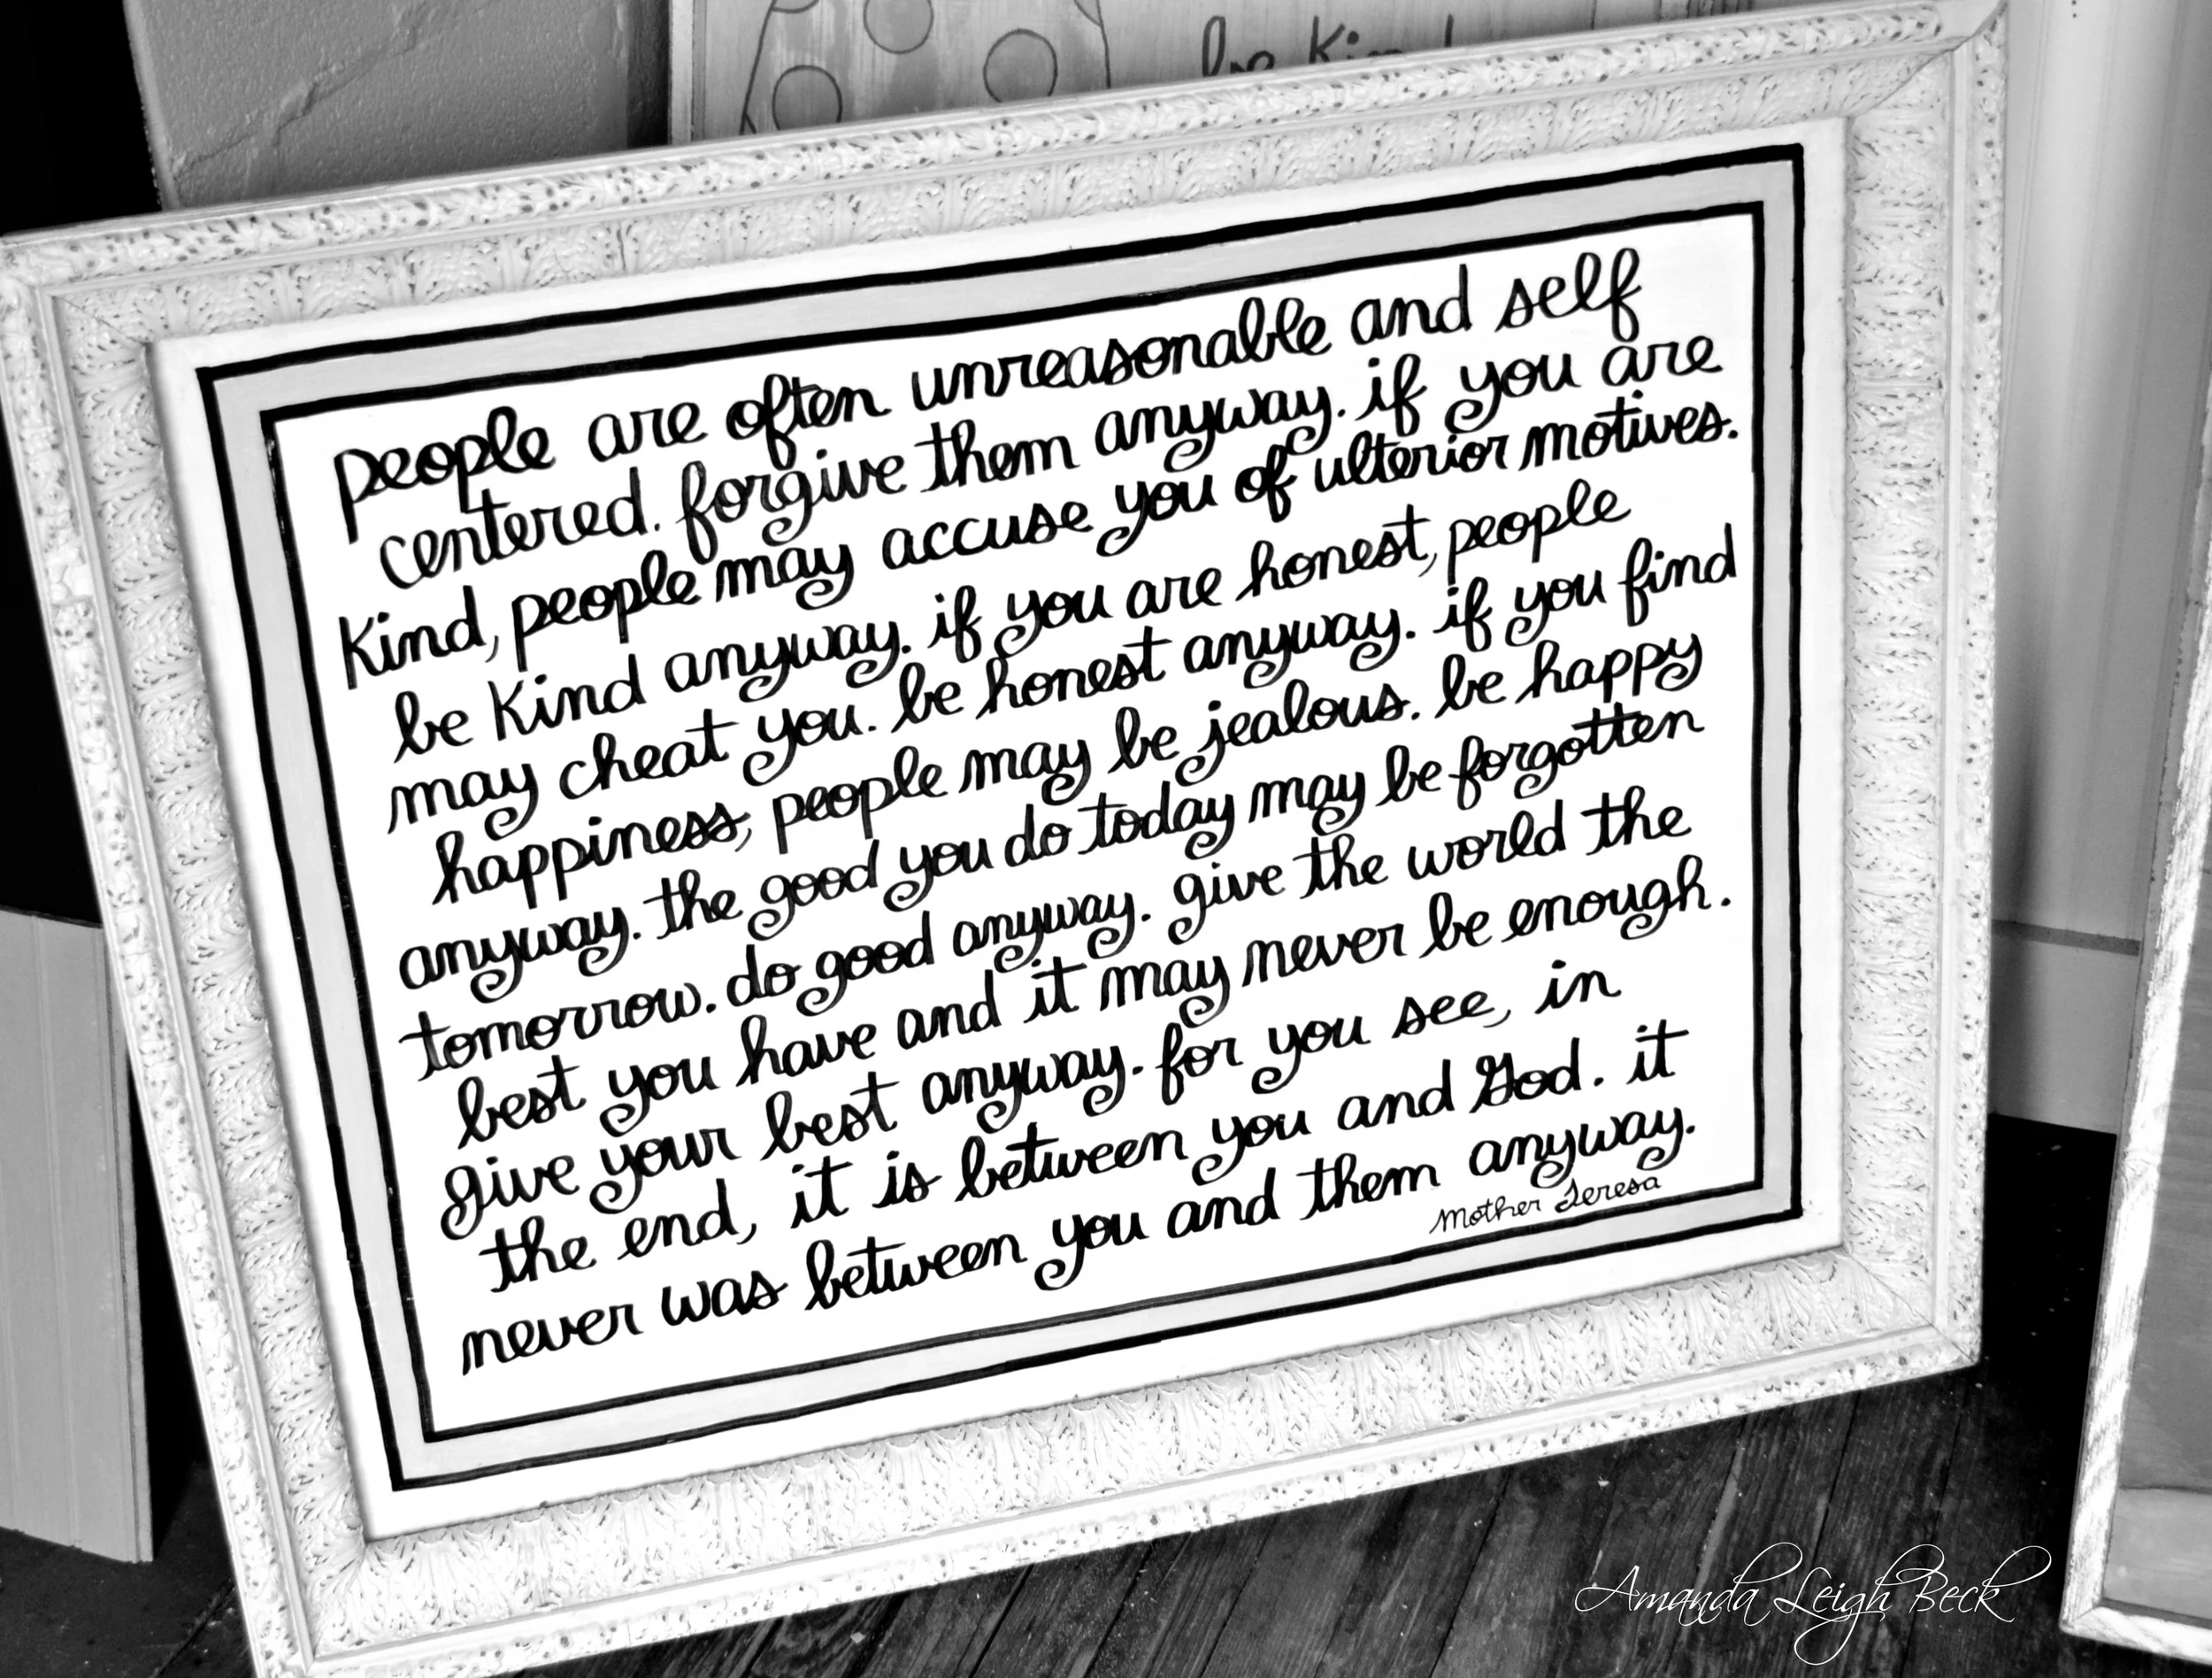 be Kind
people are often unreasonable and self
centered. forgive them anyway. if you are
Kind, people may accuse you of ulterior motives.
be Kind anyway. if you are honest, people
may cheat you. be honest anyway. if you find
happiness, people may be jealous. be happy
anyway. the good you do today may be forgotten
tomorrow. do good anyway. give the world the
best you have and it may never be enough.
give your best anyway. for you see, in
the end, it is between you and God. it
never was between you and them anyway.
Mother Teresa
Amanda Leigh Beck